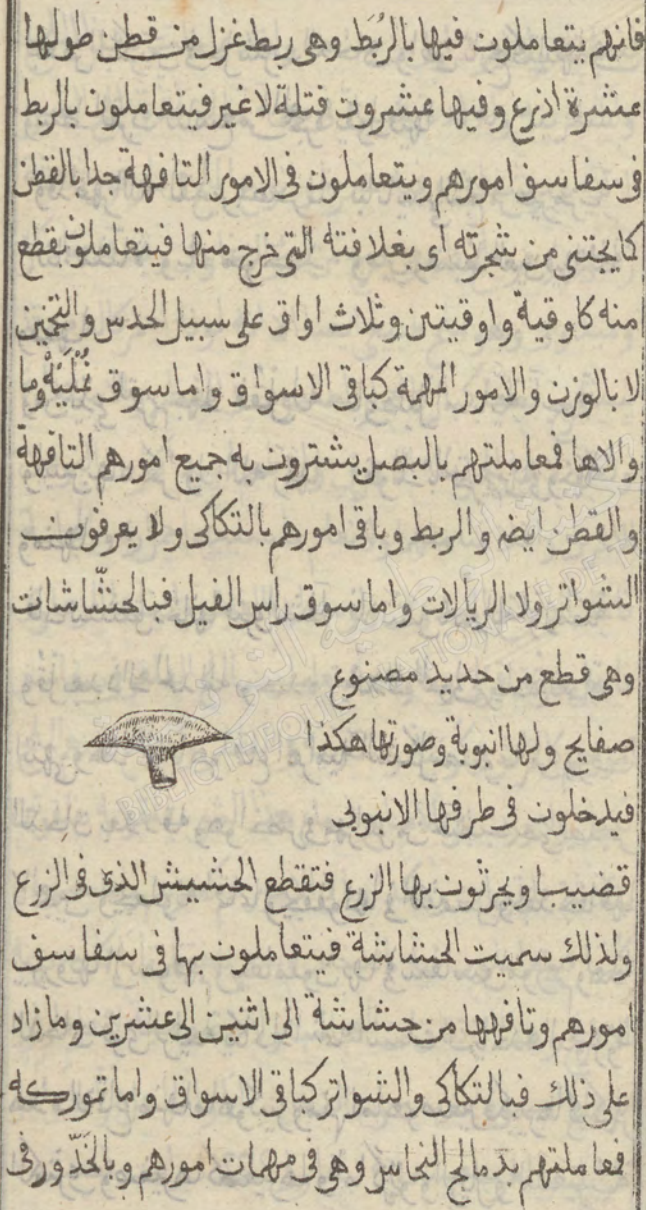 فانهم يتعاملون فيها بالرُبَط وهى ربط غزل من قطن طولها
عشرة اذرع وفيها عشرون فتلة لا غير فيتعاملون بالربط
فى سفاسف امورهم ويتعاملون فى الامور التافهة جدا بالقطن
كما يجتنى من شجرته اى بغلافته التى خرج منها فيتعاملون بقطع
منه كاوقية واوقيتين وثلاث اواق على سبيل الحدس والتخمين
لا بالوزن والامور المهمة كباقى الاسواق واما سوق نُمْلَيْهْ وما
والاها فمعاملتهم بالبصل يشترون به جميع امورهم التافهة
والقطن ايضه والربط وباقى امورهم بالتكاكى ولا يعرفون
الشواتر ولا الريالات واما سوق راس الفيل فبالحشّاشات
وهى قطع من حديد مصنوع
صفايح ولها انبوبة وصورتها هكذا
فيدخلون فى طرفها الانبوبى
قضيبا ويحرثون بها الزرع فتقطع الحشيش الذى فى الزرع
ولذلك سميت الحشاشة فيتعاملون بها فى سفاسف
امورهم وتافهها من حشاشة الى اثنين الى عشرين وما زاد
على ذلك فبالتكاكى والشواتر كباقى الاسواق واما تموركه
فمعاملتهم بدمالج النحاس وهى فى مهمات امورهم وبالخَدّور فى